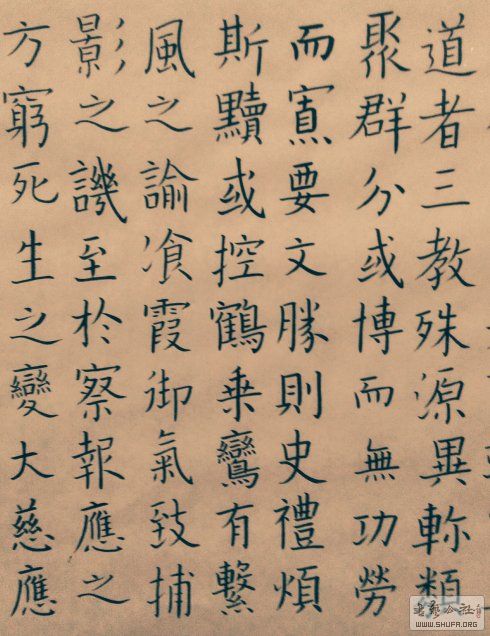 道者三教殊源異軫類
聚群分或博而無功勞
而寡要文勝則史禮煩
斯黷或控鶴乗鸞有繫
風之諭飡霞御氣致捕
影之譏至於察報應之
方窮死生之變大慈應
書藝公社
WWW.SHUFA.ORG